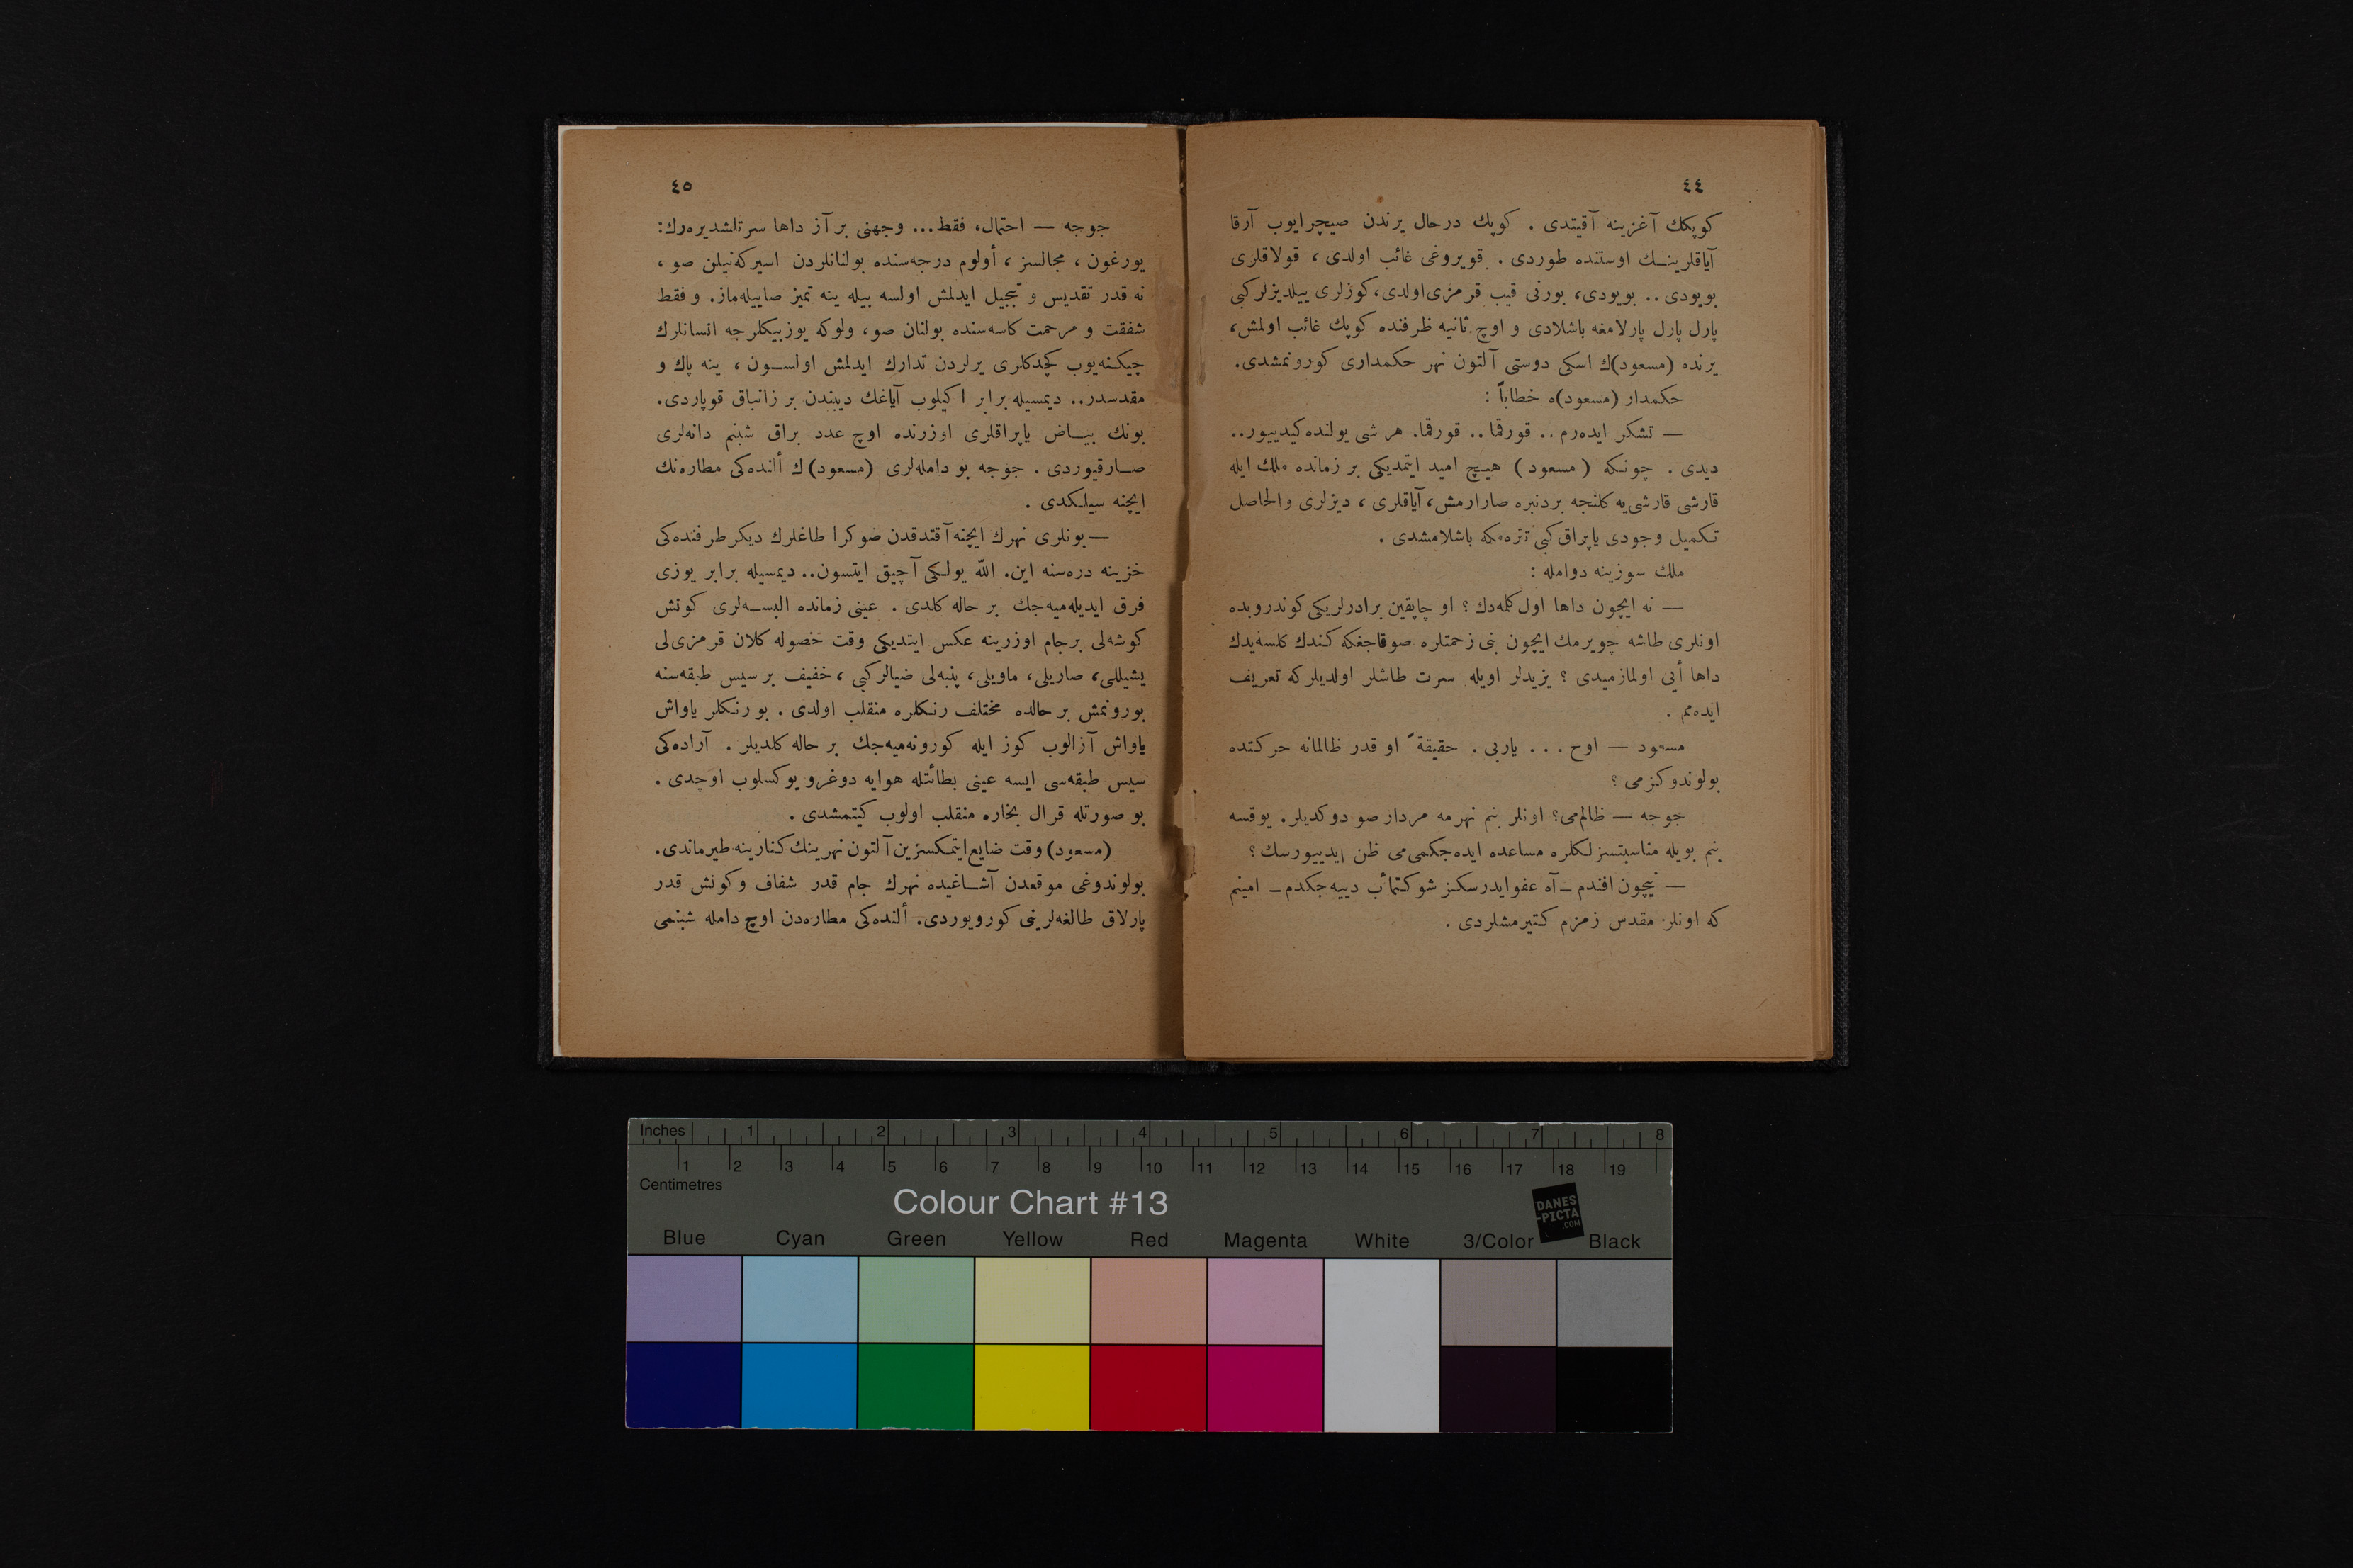 ٤٤
كوپكك آغزينه آقيتدى . كوپك درحال يرندن صيچرايوب آرقا
آياقلرينك اوستنده طوردى . قويروغى غائب اولدى ، قولاقلرى
بويودى .. بويودى، بورنى قيب قرمزى اولدى، كوزلرى ييلديزلر كبى
پارل پارل پارلامغه باشلادى و اوچ ثانيه ظرفنده كوپك غائب اولمش،
يرنده (مسعود)ك اسكى دوستى آلتون نهر حكمدارى كورونمشدى.
حكمدار (مسعود)ه خطاباً :
— تشكر ايده‌رم .. قورقما .. قورقما. هر شى يولنده كيدييور..
ديدى . چونكه (مسعود) هيچ اميد ايتمديكى بر زمانده ملك ايله
قارشى قارشى‌يه كلنجه بردنبره صارارمش، آياقلرى ، ديزلرى والحاصل
تكميل وجودى ياپراق كبى تتره‌مكه باشلامشدى .
ملك سوزينه دوامله :
— نه ايچون داها اول كلمه‌دك ؟ او چاپقين برادرلريكى كوندروبده
اونلرى طاشه چويرمك ايچون بنى زحمتلره صوقاجغكه كندك كلسه‌يدك
داها أيى اولمازميدى ؟ يزيدلر اويله سرت طاشلر اولديلركه تعريف
ايده‌مم .
مسعود — اوح ... ياربى . حقيقةً او قدر ظالمانه حركتده
بولوندوكزمى ؟
جوجه — ظالم‌مى؟ اونلر بنم نهرمه مردار صو دوكديلر. يوقسه
بنم بويله مناسبتسزلكلره مساعده ايده‌جكمى‌مى ظن ايدييورسك ؟
— نيچون افندم – آه عفو ايدرسكز شوكتمأب دييه‌جكدم – امينم
كه اونلر مقدس زمزم كتيرمشلردى .
٤٥
جوجه — احتمال، فقط... وجهنى بر آز داها سرتلشديره‌رك:
يورغون ، مجالسز ، أولوم درجه‌سنده بولنانلردن اسيركه‌نيلن صو ،
نه قدر تقديس و تبجيل ايدلمش اولسه بيله ينه تميز صاييله‌ماز. و فقط
شفقت و مرحمت كاسه‌سنده بولنان صو، ولوكه يوزبيكلرجه انسانلرك
چيكنه‌يوب كچدكلرى يرلردن تدارك ايدلمش اولسون ، ينه پاك و
مقدسدر.. ديمسيله برابر اكيلوب آياغك ديبندن بر زانباق قوپاردى.
بونك بياض ياپراقلرى اوزرنده اوچ عدد براق شبنم دانه‌لرى
صارقيوردى . جوجه بو دامله‌لرى (مسعود)ك ألنده‌كى مطاره‌نك
ايچنه سيلكدى .
— بونلرى نهرك ايچنه آقتدقدن صوكرا طاغلرك ديكر طرفنده‌كى
خزينه دره‌سنه اين. الله يولكى آچيق ايتسون.. ديمسيله برابر يوزى
فرق ايديله‌ميه‌جك بر حاله كلدى . عينى زمانده البسه‌لرى كونش
كوشه‌لى برجام اوزرينه عكس ايتديكى وقت حصوله كلان قرمزى‌لى
يشيللى، صاريلى، ماويلى، پنبه‌لى ضيالر كبى ، خفيف بر سيس طبقه‌سنه
بورونمش بر حالده مختلف رنكلره منقلب اولدى . بو رنكلر ياواش
ياواش آزالوب كوز ايله كورونه‌ميه‌جك بر حاله كلديلر . آراده‌كى
سيس طبقه‌سى ايسه عينى بطائتله هوايه دوغرو يوكسلوب اوچدى .
بو صورتله قرال بخاره منقلب اولوب كيتمشدى .
(مسعود) وقت ضايع ايتمكسزين آلتون نهرينك كنارينه طيرماندى.
بولوندوغى موقعدن آشاغيده نهرك جام قدر شفاف وكونش قدر
پارلاق طالغه‌لرينى كورويوردى. ألنده‌كى مطاره‌دن اوچ دامله شبنمى
Inches 1 2 3 4 5 6 7 8
1 2 3 4 5 6 7 8 9 10 11 12 13 14 15 16 17 18 19
Centimetres
Colour Chart #13
DANES
-PICTA
.COM
Blue Cyan Green Yellow Red Magenta White 3/Color Black